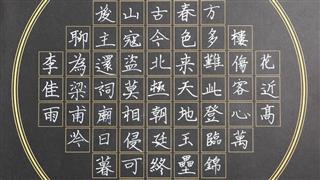 花近高
樓傷客心萬
方多難此登臨錦
春色来天地玉壘
古今北極朝廷終
山寇盜莫相侵可
後主還詞廟日暮
聊為梁甫吟
李佳雨